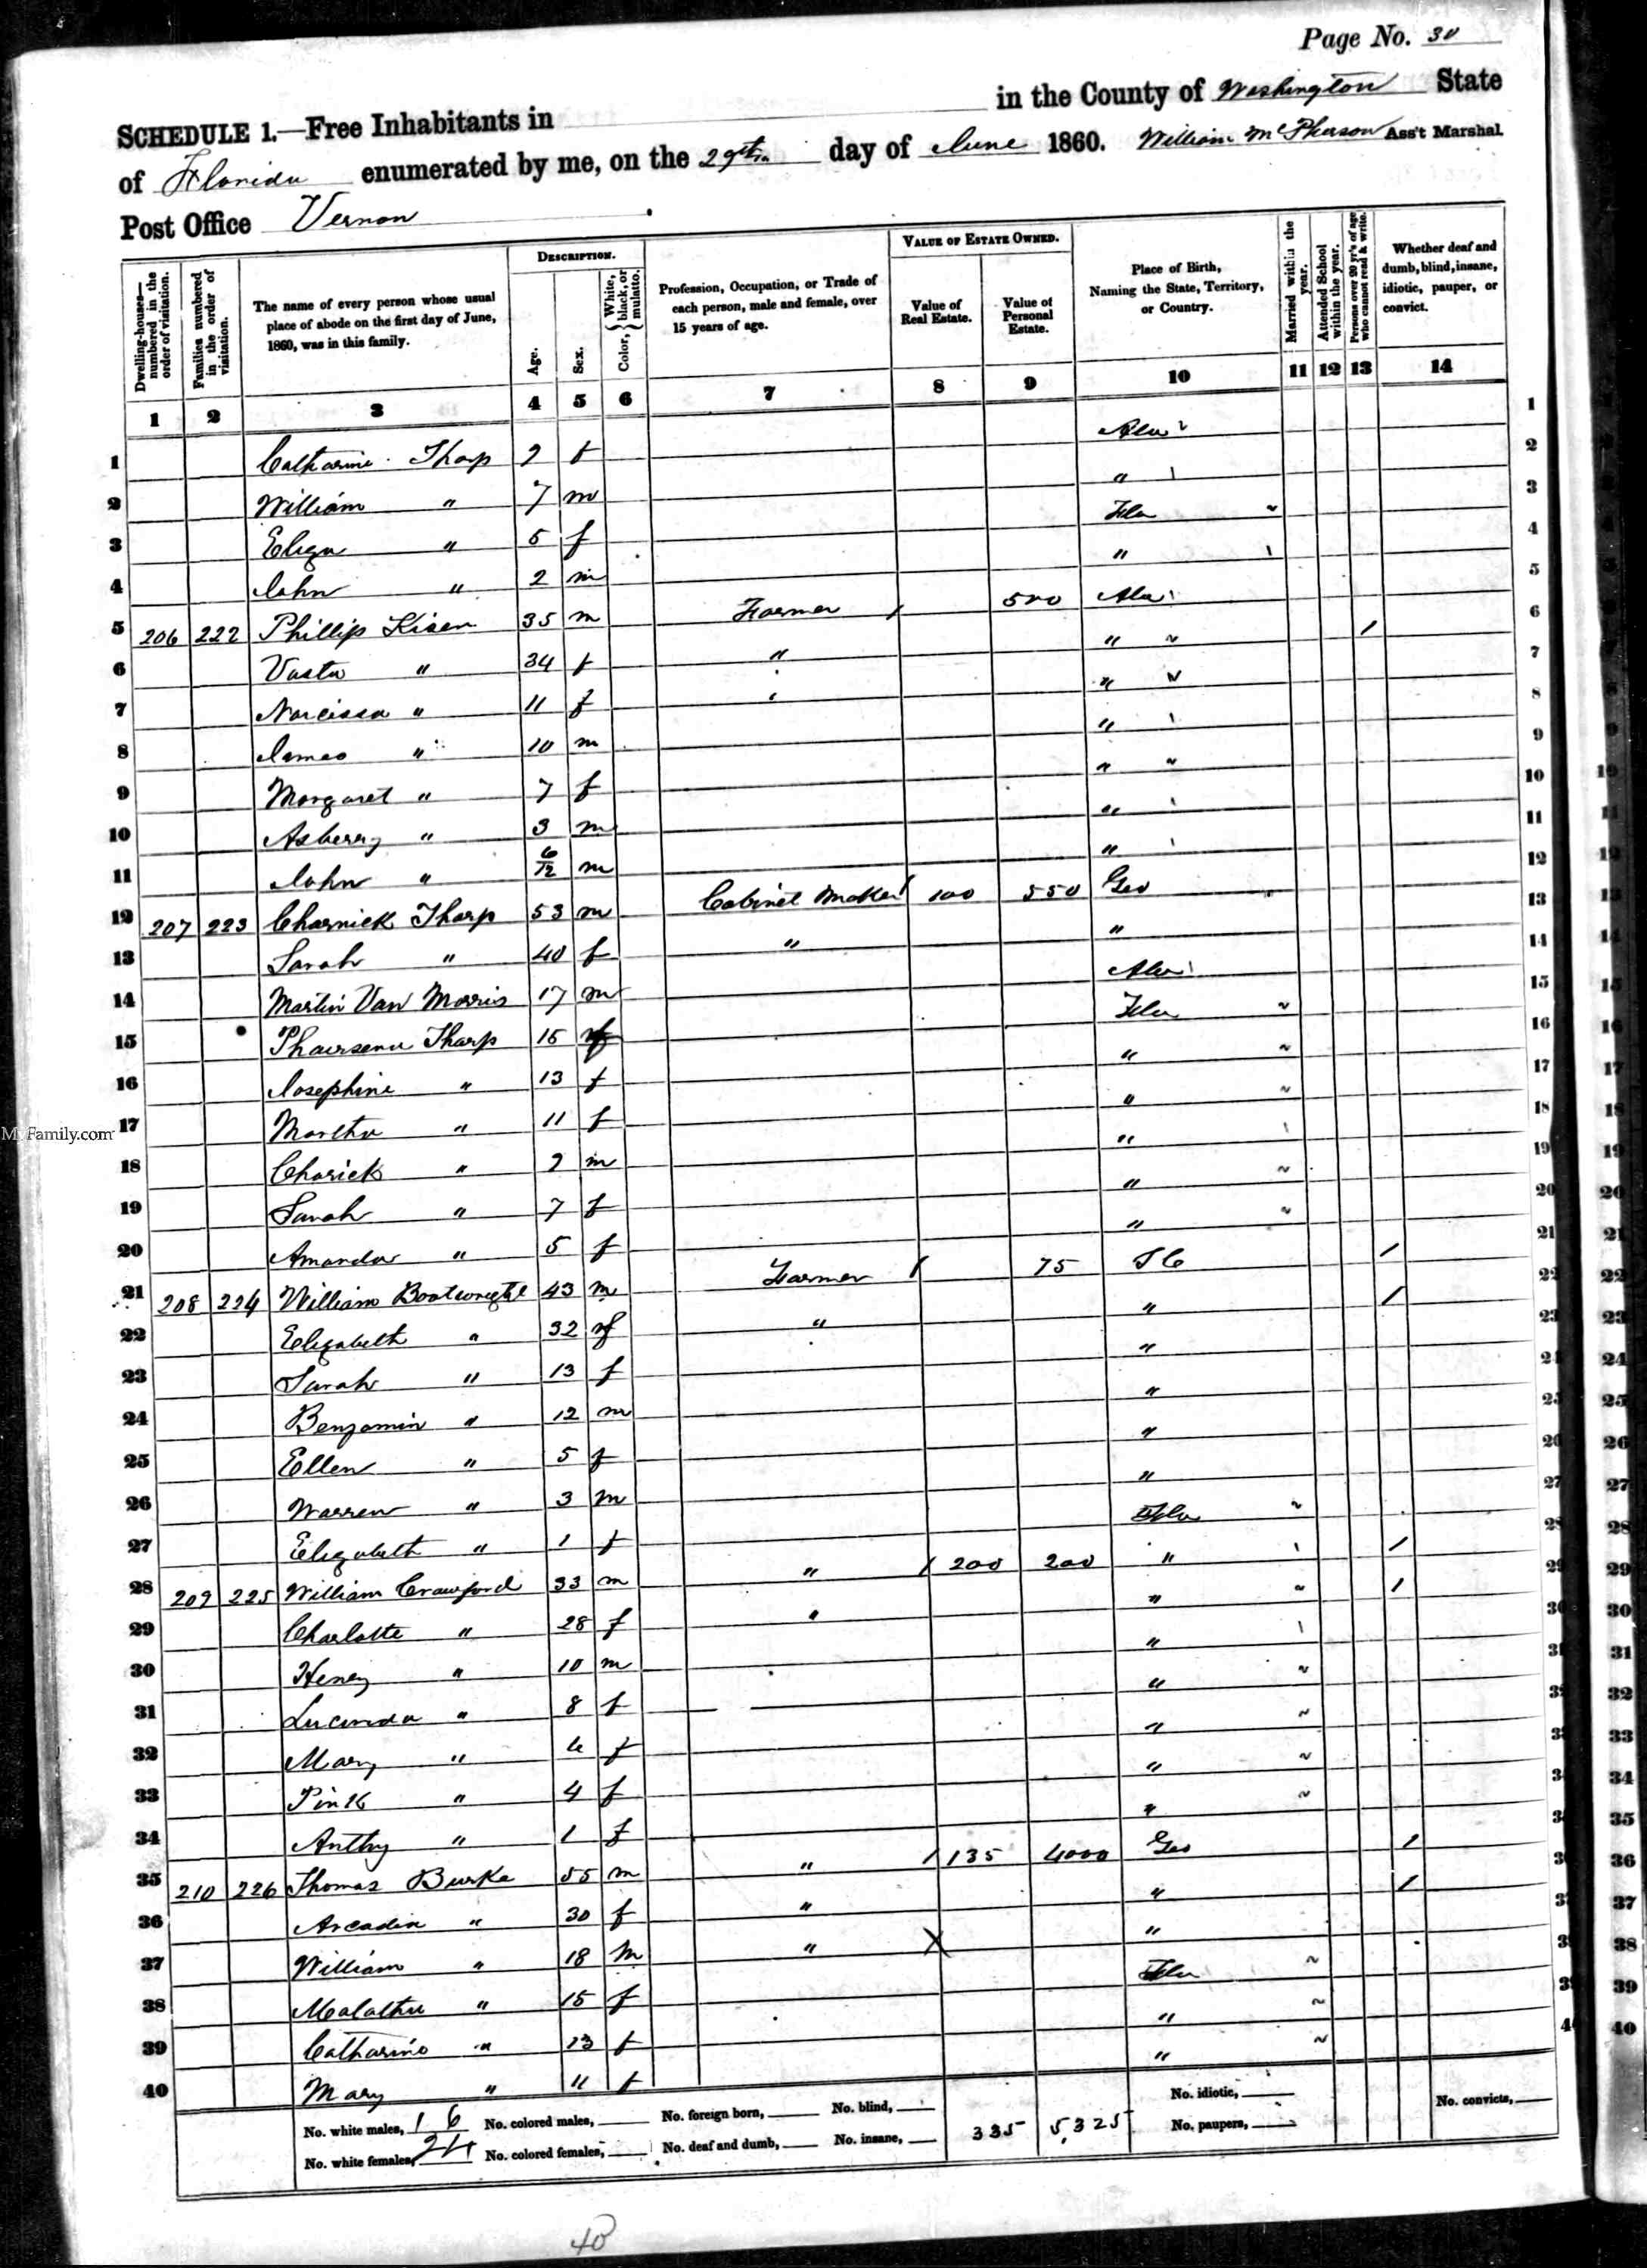 Page No. 30
SCHEDULE 1.—Free Inhabitants in in the County of Washington State
of Florida enumerated by me, on the 29th day of June 1860. William McPherson Ass't Marshal.
Post Office Vernon
Dwelling-houses—numbered in the order of visitation. Families numbered in the order of visitation. The name of every person whose usual place of abode on the first day of June, 1860, was in this family. DESCRIPTION. Age. Sex. Color, { White, black, or mulatto. Profession, Occupation, or Trade of each person, male and female, over 15 years of age. VALUE OF ESTATE OWNED. Value of Real Estate. Value of Personal Estate. Place of Birth, Naming the State, Territory, or Country. Married within the year. Attended School within the year. Persons over 20 yr's of age who cannot read & write. Whether deaf and dumb, blind, insane, idiotic, pauper, or convict.
1 2 3 4 5 6 7 8 9 10 11 12 13 14
1 Catharine Tharp f Ala 1
2 William " 7 m " 2
3 Eliza " 5 f Fla 3
4 John " 2 m " 4
5 206 222 Phillip Kisen 35 m Farmer / 500 Ala 5
6 " 34 f " " / 6
7 Narcissa " 11 f " 7
8 James " 10 m " 8
9 Margaret " 7 f " 9
10 Asberry " 3 m " 10
11 John " 6/12 m " 11
12 207 223 Charnick Tharp 53 m Cabinet Maker / 100 550 Geo 12
13 Sarah " 40 f " " 13
14 Martin Van Morris 17 m Ala 14
15 Tharp 15 f Fla 15
16 Josephine " 13 f " 16
17 Martha " 11 f " 17
18 Charick " m " 18
19 Sarah " 7 f " 19
20 Amanda " 5 f " 20
21 208 224 William Boatwright 43 m Farmer / 75 S C / 21
22 Elizabeth " 32 f " " / 22
23 Sarah " 13 f " 23
24 Benjamin " 12 m " 24
25 Ellen " 5 f " 25
26 Warren " 3 m " 26
27 Elizabeth " 1 f Fla 27
28 209 225 William Crawford 33 m " / 200 200 " / 28
29 Charlotte " 28 f " " / 29
30 Henry " 10 m " 30
31 Lucinda " 8 f " 31
32 Mary " 6 f " 32
33 Pink " 4 f " 33
34 Anthy " 1 f " 34
35 210 226 Thomas Burke 55 m " / 135 4000 Geo / 35
36 Arcadia " 30 f " " / 36
37 William " 18 m " X " 37
38 Malatha " 15 f Fla 38
39 Catharine " 13 f " 39
40 Mary " 11 f " 40
No. white males, 16 No. colored males, No. foreign born, No. blind, No. idiotic, No. convicts,
No. white females, 24 No. colored females, No. deaf and dumb, No. insane, 335 5,325 No. paupers,
40
MyFamily.com